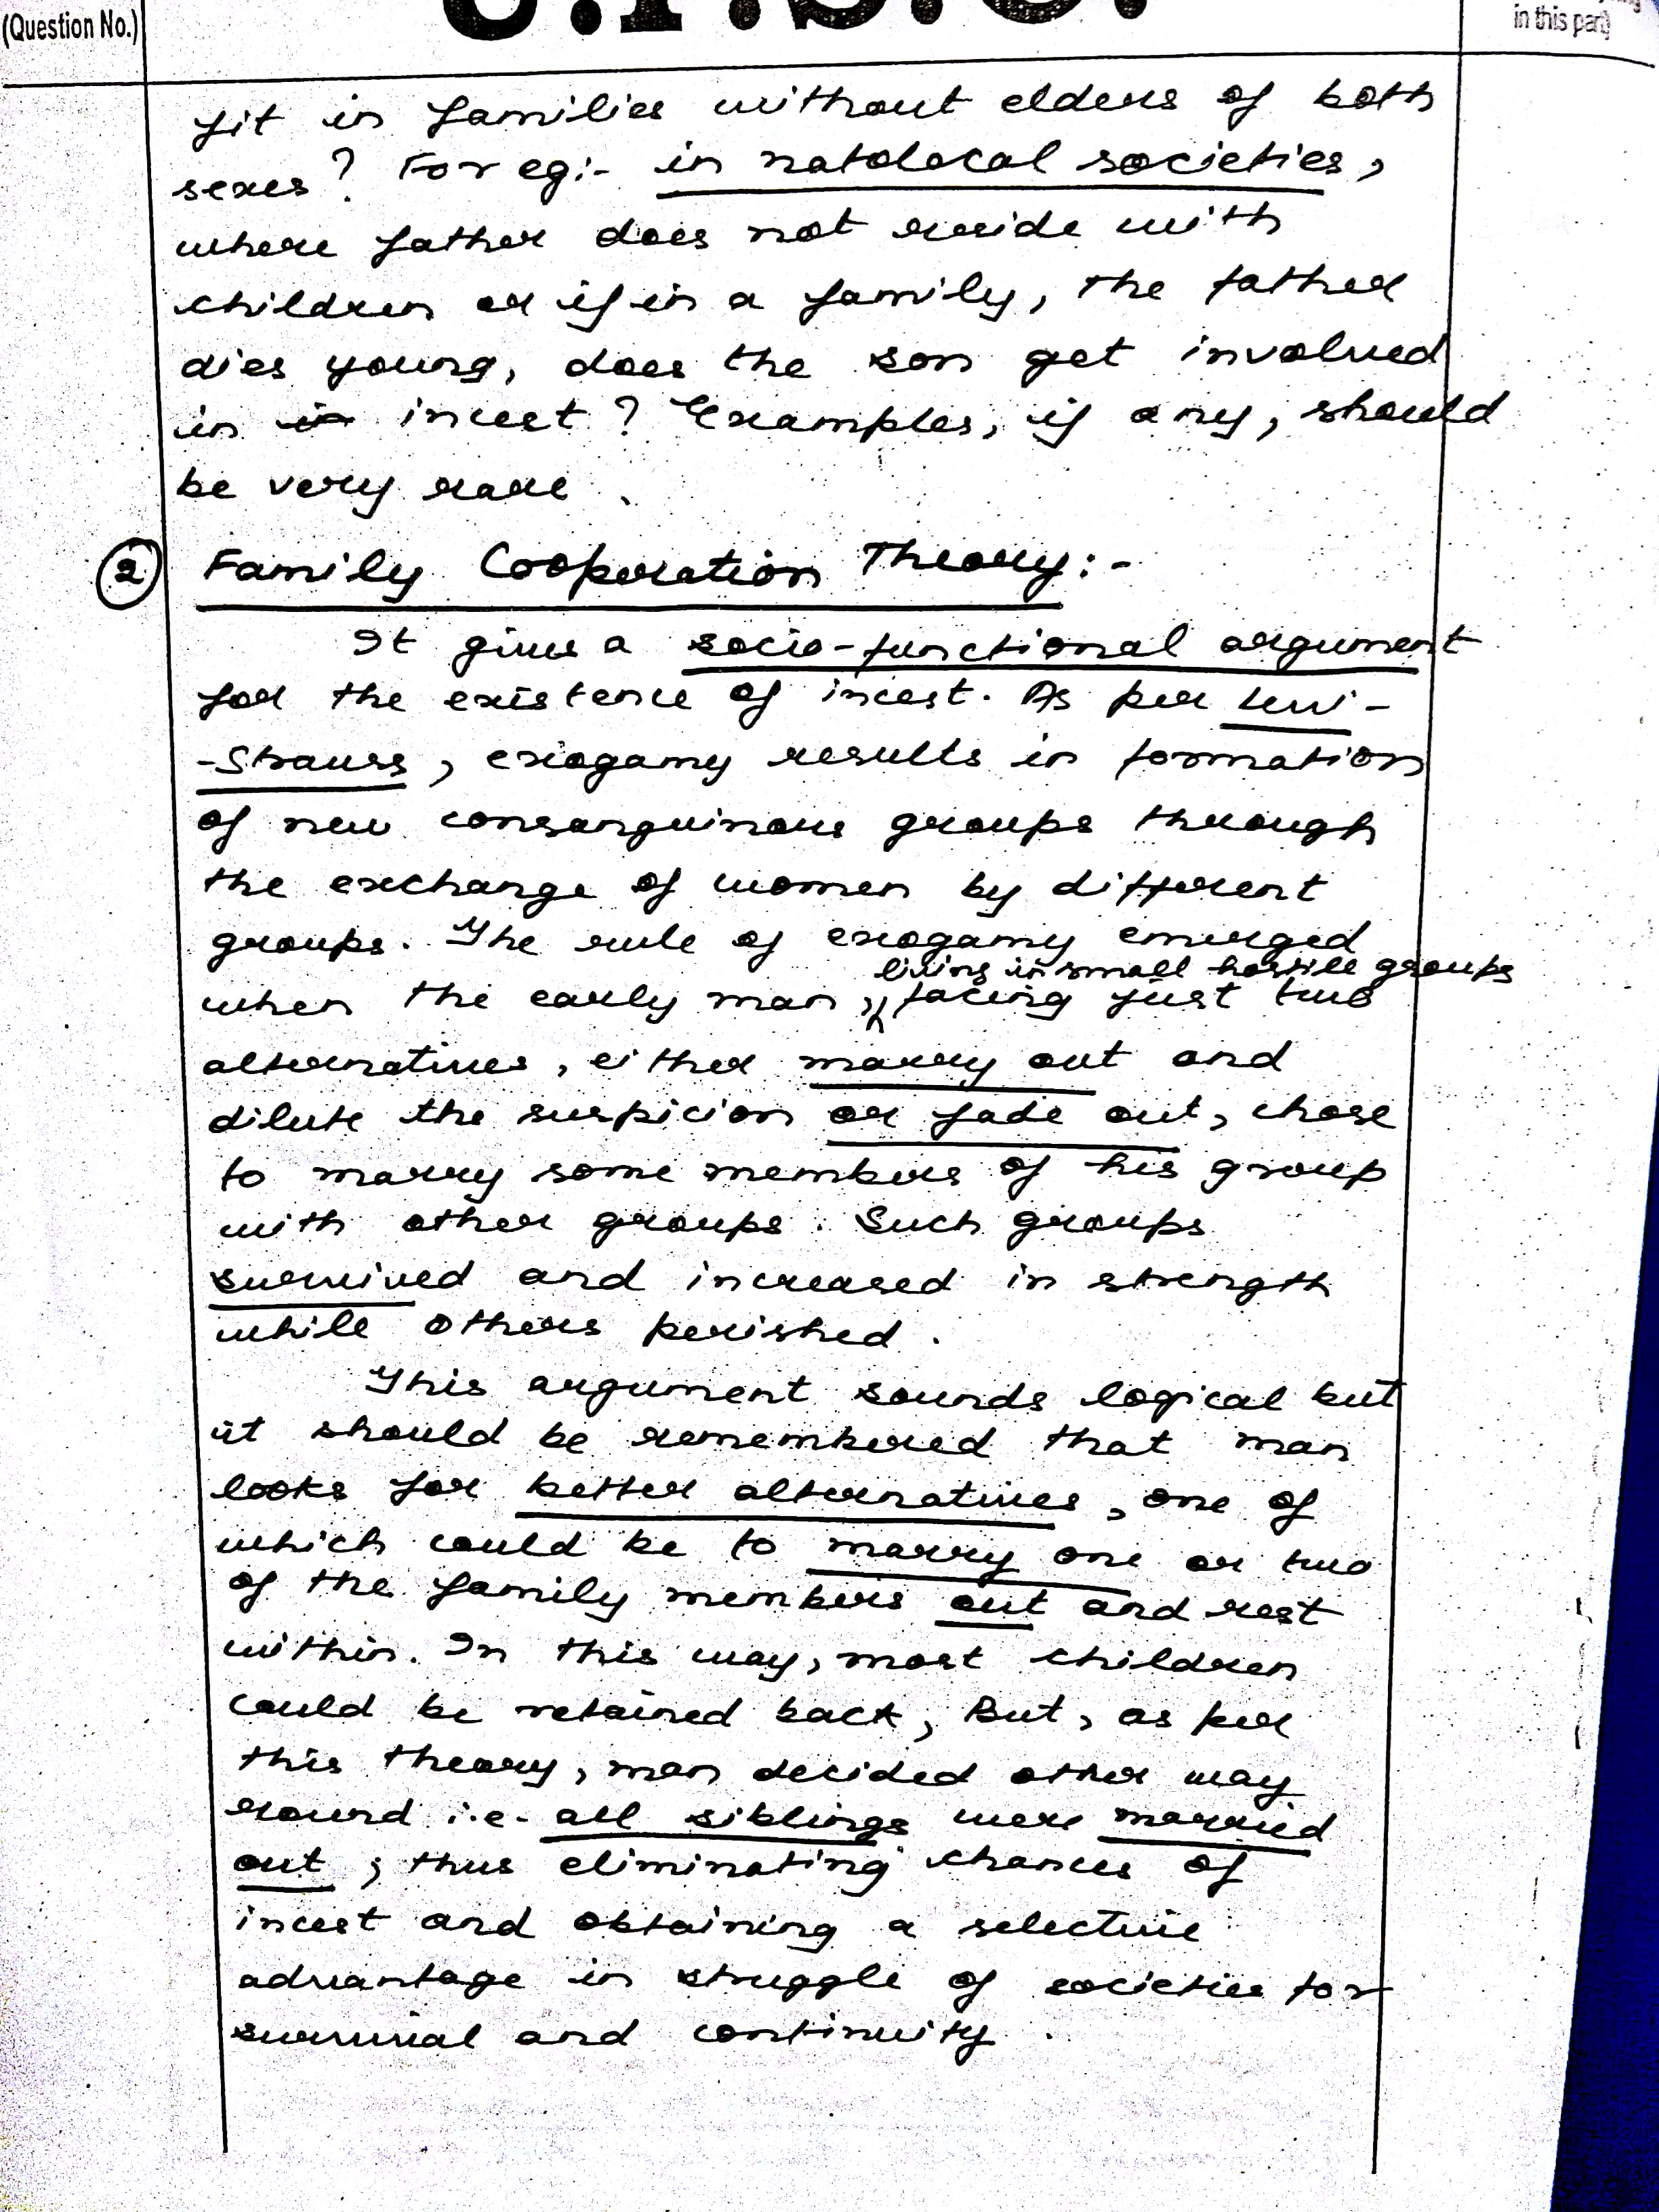 (Question No.)
in this part)
fit in families without elders of both
sexes? For eg:- in natolocal societies,
where father does not reside with
children or if in a family, the father
dies young, does the son get involved
in incest? Examples, if any, should
be very rare.
2 Family Cooperation Theory:-
It gives a socio-functional argument
for the existence of incest. As per Levi-
-Strauss, exogamy results in formation
of new consanguinous groups through
the exchange of women by different
groups. The rule of exogamy emerged
living in small hostile groups
when the early man, facing just two
alternatives, either marry out and
dilute the suspicion or fade out, chose
to marry some members of his group
with other groups. Such groups
survived and increased in strength
while others perished.
This argument sounds logical but
it should be remembered that man
looks for better alternatives, one of
which could be to marry one or two
of the family members out and rest
within. In this way, most children
could be retained back, But, as per
this theory, man decided other way
round i.e. all siblings were married
out, thus eliminating chances of
incest and obtaining a selective
advantage in struggle of societies for
survival and continuity.